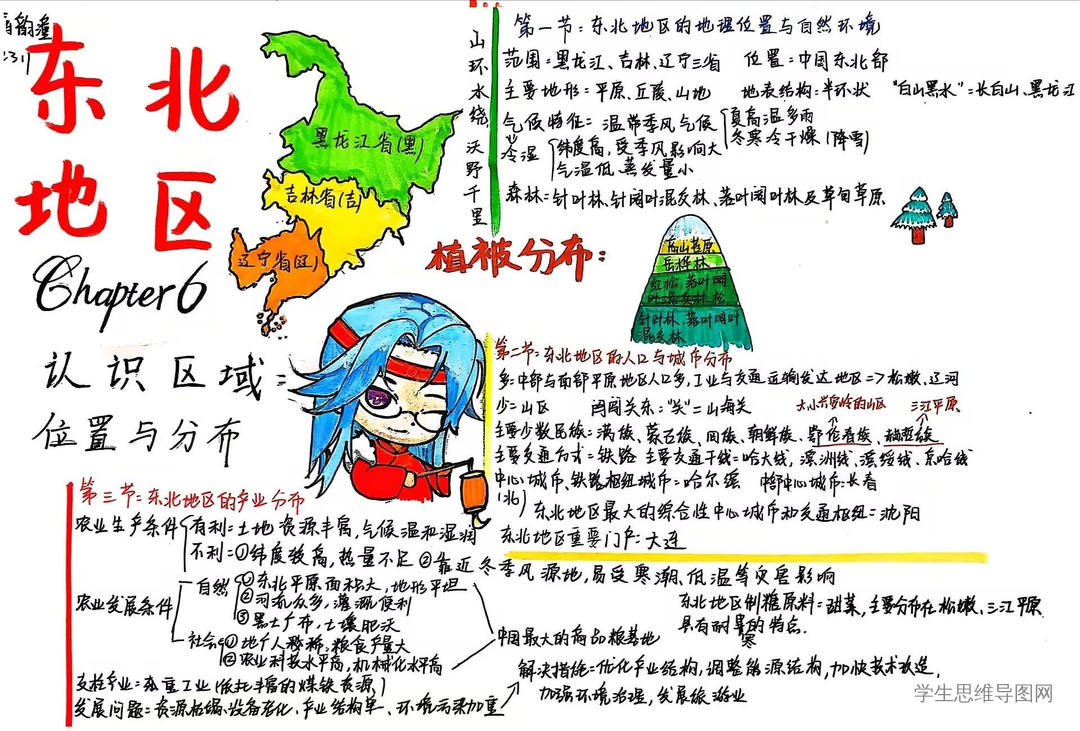 东北
地区
Chapter 6
认识区域:
位置与分布
黑龙江省(黑)
吉林省(吉)
辽宁省(辽)
山环水绕沃野千里
第一节:东北地区的地理位置与自然环境
范围=黑龙江、吉林、辽宁三省 位置=中国东北部
主要地形=平原、丘陵、山地 地表结构=半环状 "白山黑水"=长白山、黑龙江
气候特征=温带季风气候 夏高温多雨
冬寒冷干燥(降雪)
冷湿 纬度高,受季风影响大
气温低、蒸发量小
森林=针叶林、针阔叶混交林、落叶阔叶林及草甸草原
植被分布:
高山苔原
岳桦林
红松,落叶阔
叶混交林
针叶林、落叶阔叶
混交林
第二节:东北地区的人口与城市分布
多=中部与南部平原地区人口多,工业与交通运输发达地区=>松嫩、辽河
少=山区 闯关东:"关"=山海关 大小兴安岭的山区 三江平原
主要少数民族=满族、蒙古族、回族、朝鲜族、鄂伦春族、赫哲族
主要交通方式=铁路 主要交通干线=哈大线,滨洲线、滨绥线、京哈线
中心城市、铁路枢纽城市=哈尔滨 中部中心城市:长春
(北)
东北地区最大的综合性中心城市和交通枢纽=沈阳
东北地区重要门户:大连
第三节:东北地区的产业分布
农业生产条件 有利=土地资源丰富,气候温和湿润
不利=①纬度较高,热量不足 ②靠近冬季风源地,易受寒潮、低温等灾害影响
农业发展条件
自然 ①东北平原面积大,地形平坦
②河流众多,灌溉便利
③黑土广布,土壤肥沃
社会 ①地广人稀,粮食产量大
②农业科技水平高,机械化水平高
中国最大的商品粮基地
东北地区制糖原料=甜菜,主要分布在松嫩、三江平原
具有耐寒的特点.
支柱产业=重工业(依托丰富的煤铁资源)
发展问题=资源枯竭、设备老化、产业结构单一、环境污染加重
解决措施=优化产业结构,调整能源结构,加快技术改造,
加强环境治理,发展旅游业
学生思维导图网